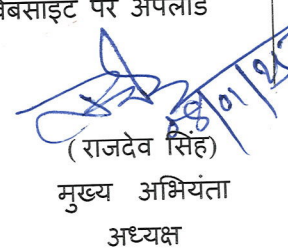 वेबसाइट पर अपलोड
08/01/25
( राजदेव सिंह)
मुख्य अभियंता
अध्यक्ष